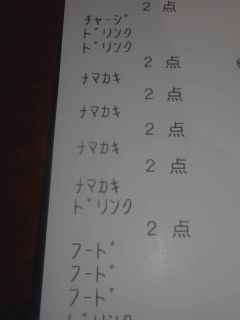 2 点
ﾁｬｰｼﾞ
ﾄﾞﾘﾝｸ
ﾄﾞﾘﾝｸ
2 点
ﾅﾏｶｷ
2 点
ﾅﾏｶｷ
2 点
ﾅﾏｶｷ
2 点
ﾅﾏｶｷ
ﾄﾞﾘﾝｸ
2 点
ﾌｰﾄﾞ
ﾌｰﾄﾞ
ﾌｰﾄﾞ
ﾄﾞﾘﾝｸ